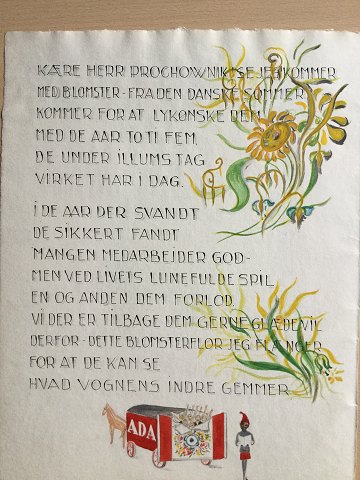 KÆRE HERR PROCHOWNIK! SE JEG KOMMER
MED BLOMSTER - FRA DEN DANSKE SOMMER
KOMMER FOR AT LYKØNSKE DEM
MED DE AAR TO TI FEM,
DE UNDER ILLUMS TAG
VIRKET HAR I DAG.
I DE AAR DER SVANDT
DE SIKKERT FANDT
MANGEN MEDARBEJDER GOD-
MEN VED LIVETS LUNEFULDE SPIL
EN OG ANDEN DEM FORLOD.
VI DER ER TILBAGE DEM GERNE GLÆDE VIL
DERFOR - DETTE BLOMSTERFLOR JEG FLÆNGER
FOR AT DE KAN SE
HVAD VOGNENS INDRE GEMMER
ADA